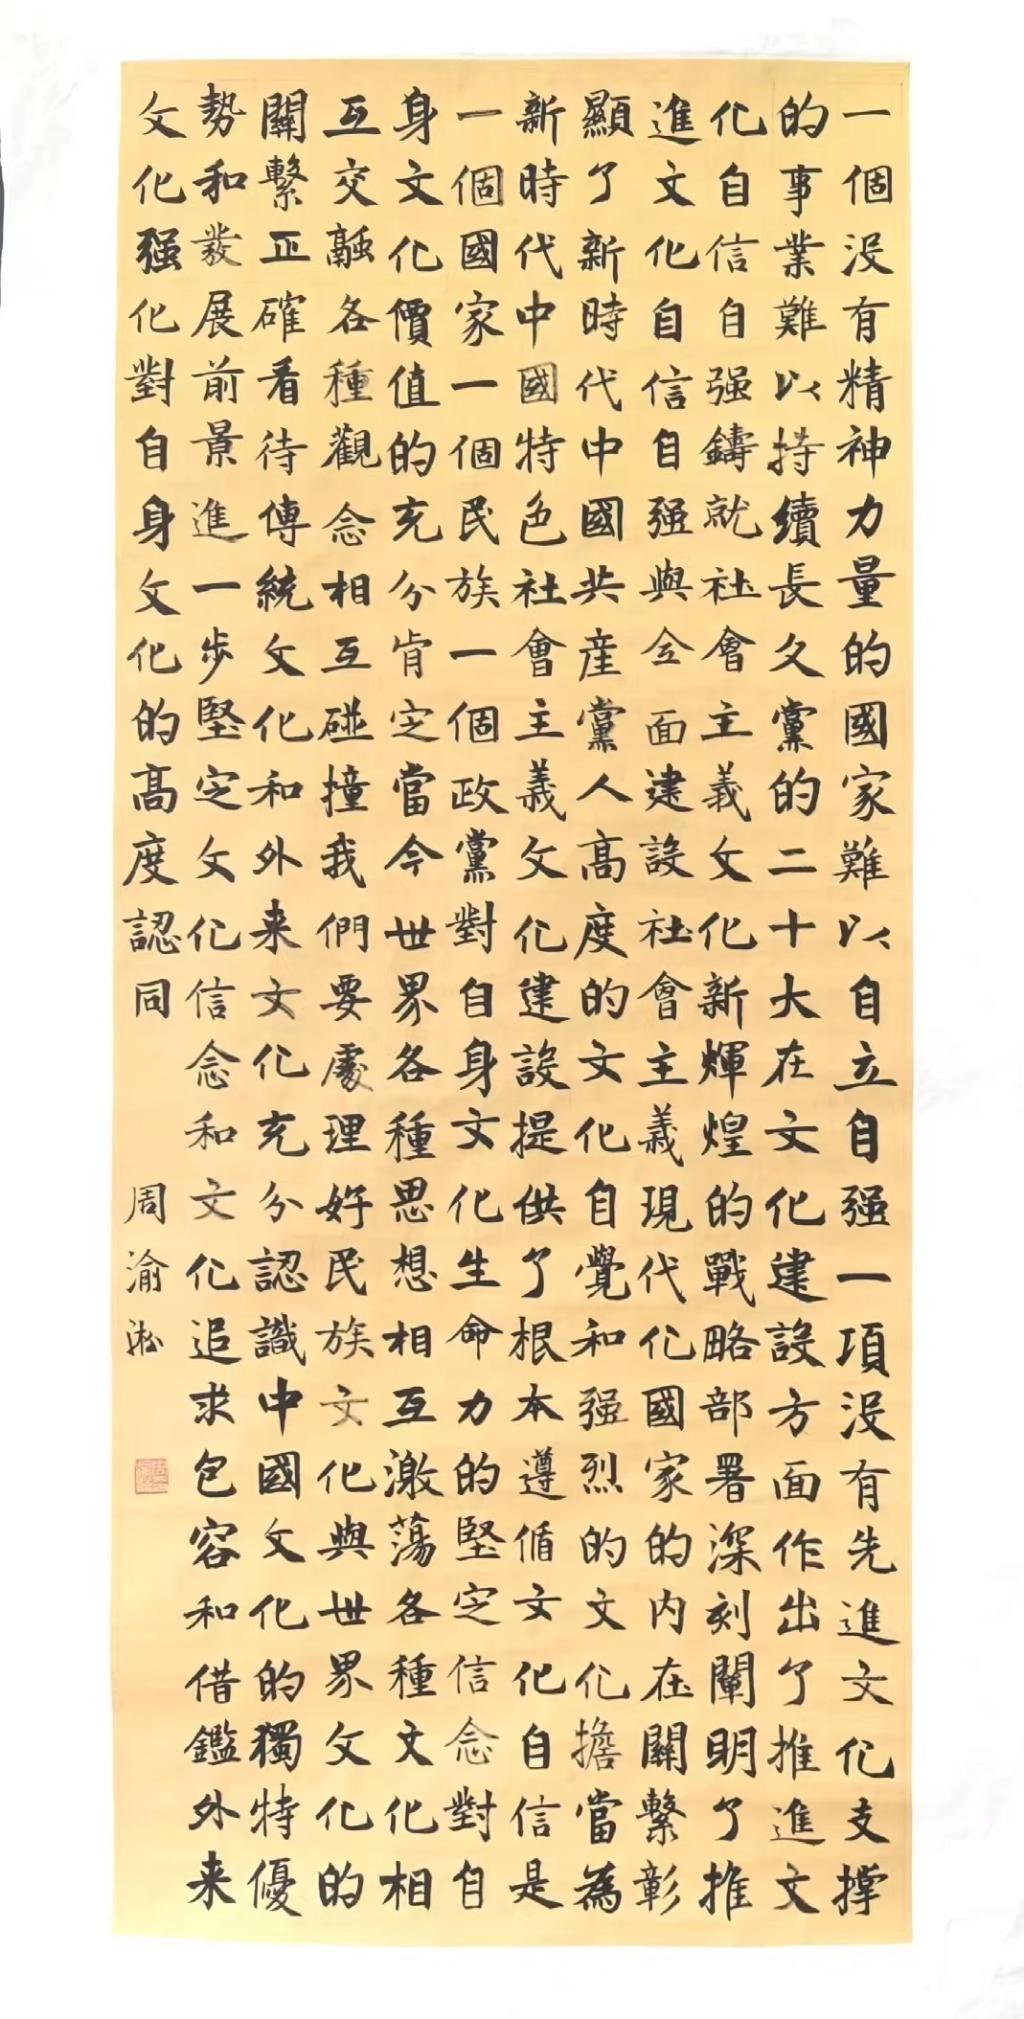 一個没有精神力量的國家難以自立自强一項没有先進文化支撐
的事業難以持續長久黨的二十大在文化建設方面作出了推進文
化自信自强鑄就社會主義文化新輝煌的戰略部署深刻闡明了推
進文化自信自强與全面建設社會主義現代化國家的内在關繫彰
顯了新時代中國共産黨人高度的文化自覺和强烈的文化擔當為
新時代中國特色社會主義文化建設提供了根本遵循文化自信是
一個國家一個民族一個政黨對自身文化生命力的堅定信念對自
身文化價值的充分肯定當今世界各種思想相互激蕩各種文化相
互交融各種觀念相互碰撞我們要處理好民族文化與世界文化的
關繫正確看待傳統文化和外来文化充分認識中國文化的獨特優
勢和發展前景進一步堅定文化信念和文化追求包容和借鑑外来
文化强化對自身文化的高度認同
周渝淞